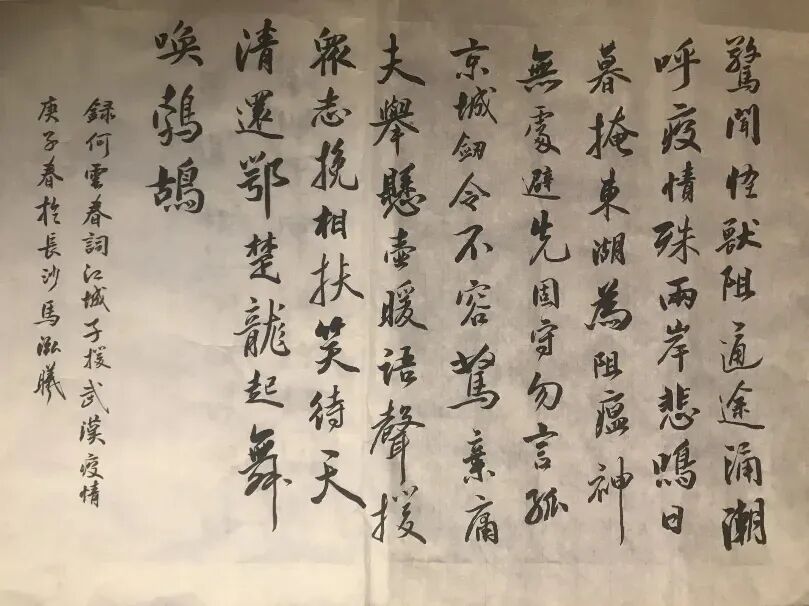 驚聞怪獸阻通途涌潮
呼疫情殊兩岸悲鳴日
暮掩東湖為阻瘟神
無處避先固守勿言孤
京城釼令不容駑棄庸
夫舉懸壺暖語聲援
眾志挽相扶笑待天
清還鄂楚龍起舞
喚鵓鴣
録何雲春詞江城子援武漢疫情
庚子春於長沙馬泓曦